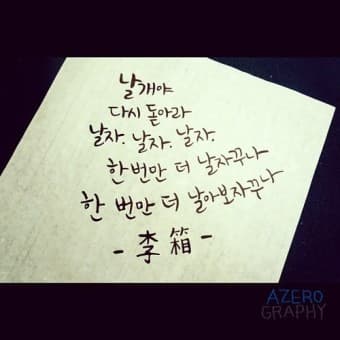 날개야
다시 돋아라
날자. 날자. 날자.
한 번만 더 날자꾸나
한 번만 더 날아보자꾸나
- 李箱 -
AZERO
GRAPHY